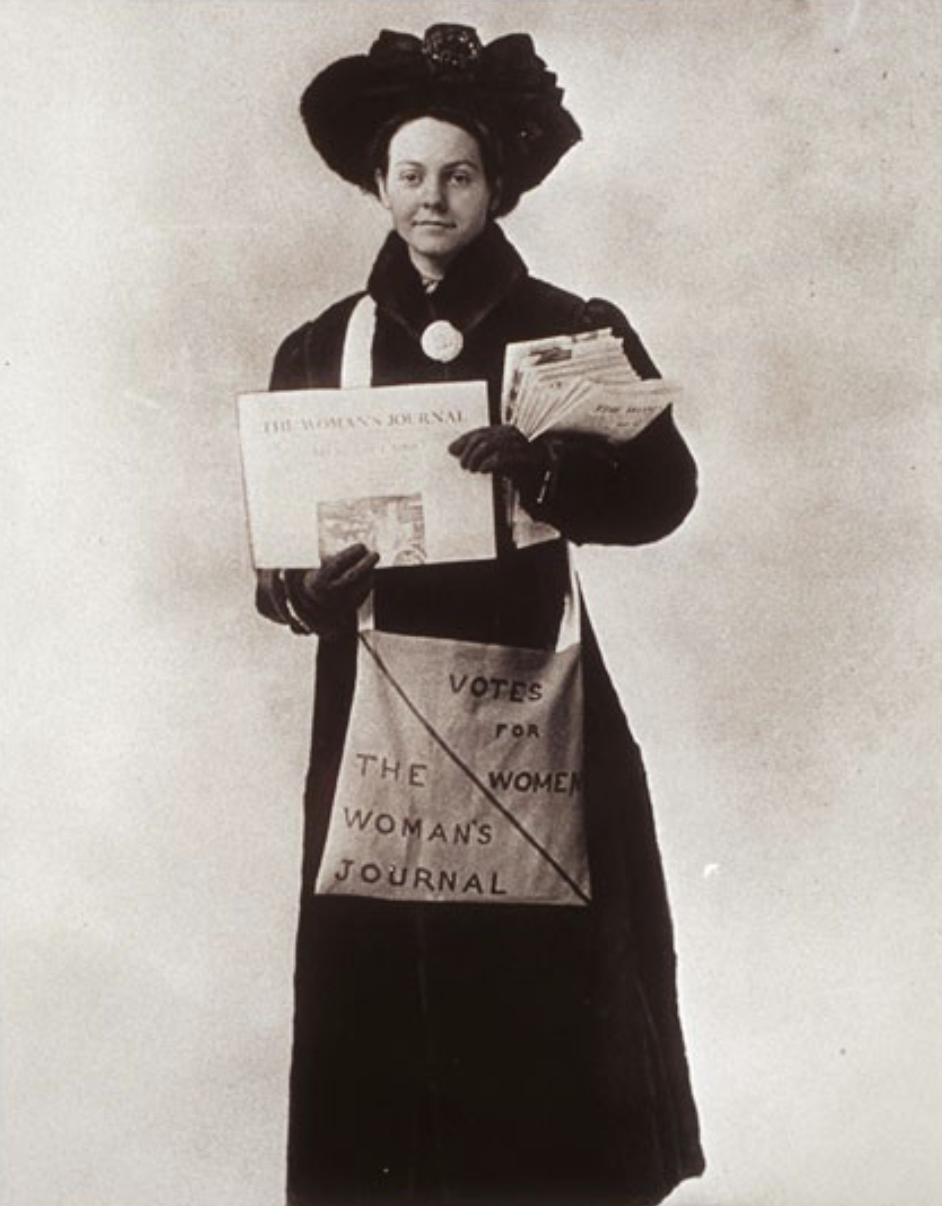 THE WOMAN'S JOURNAL
VOTES
FOR
WOMEN
THE
WOMAN'S
JOURNAL